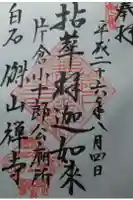 奉拝
平成二十六年八月四日
拈華釋迦如來
片倉小十郎公廟所
白石 傑山禪寺